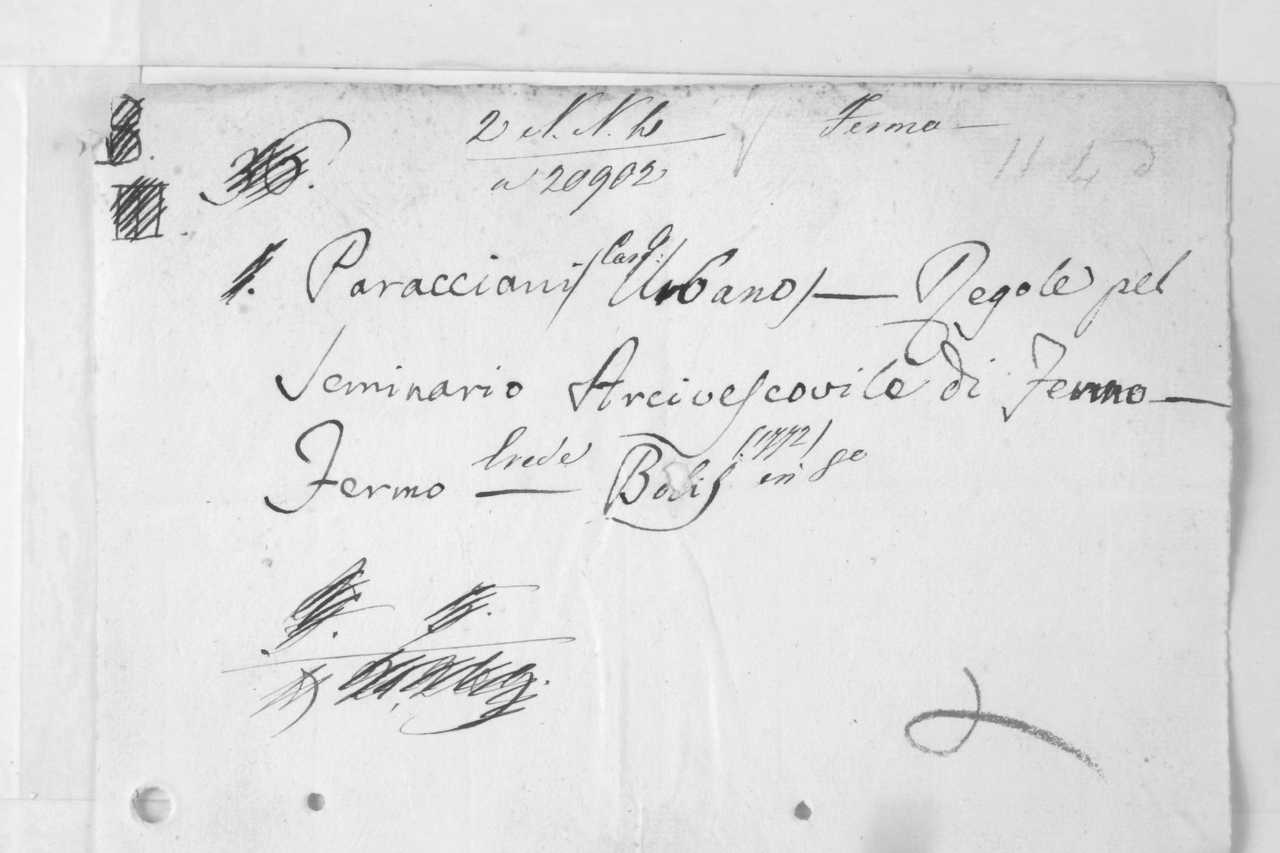 2 N. N. h Fermo —
a 20902
Paracciani (Card: Urbano) — Regole pel
Seminario Arcivescovile di Fermo —
Fermo — Erede Bolis (1772) in 8o